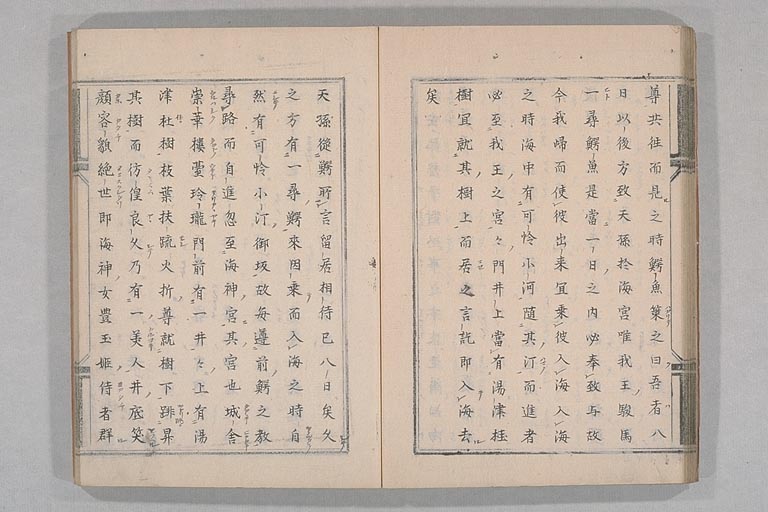 尊共往而見之時鰐魚策之曰吾者八
日以後方致天孫於海宮唯我王駿馬
一尋鰐魚是當一日之内必奉致与故
今我歸而使彼出来宜乗彼入海入海
之時海中有可怜小河随其汀而進者
必至我王之宮々門井上當有湯津桂
樹宜就其樹上而居之言訖即入海去
矣
天孫従鰐所言留居相待已八日矣久
之方有一尋鰐来因乗而入海之時自
然有可怜小汀御坂故毎遵前鰐之教
尋路而自進忽至海神宮其宮也城舎
崇華樓臺玲瓏門前有一井々上有湯
津杜樹枝葉扶疏火折尊就樹下跳昇
其樹而彷徨良久乃有一美人井底笑
顔容貌絶世即海神女豊玉姫侍者群